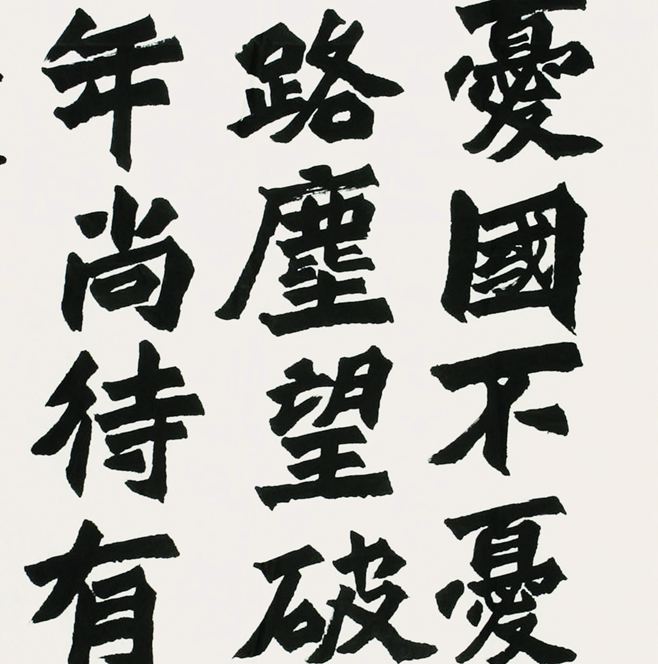 憂國不憂
路塵望破
年尚待有